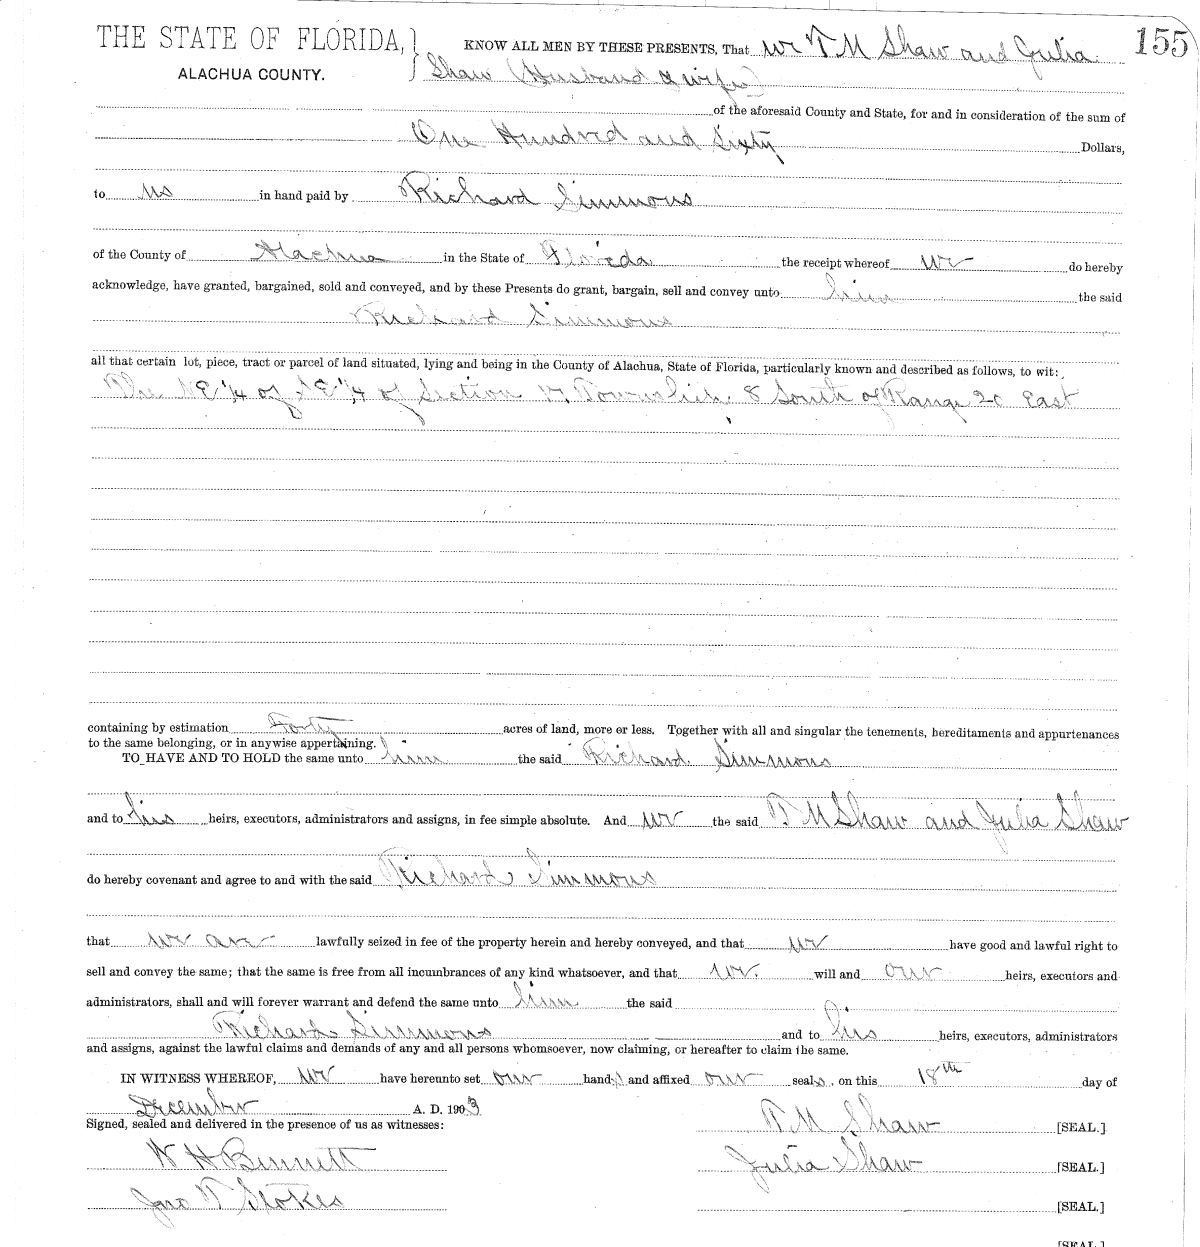 155
THE STATE OF FLORIDA, } KNOW ALL MEN BY THESE PRESENTS, That We T M Shaw and Julia
ALACHUA COUNTY. Shaw (Husband & wife)
of the aforesaid County and State, for and in consideration of the sum of
One Hundred and Sixty Dollars,
to us in hand paid by Richard Simmons
of the County of Alachua in the State of Florida the receipt whereof we do hereby
acknowledge, have granted, bargained, sold and conveyed, and by these Presents do grant, bargain, sell and convey unto him the said
Richard Simmons
all that certain lot, piece, tract or parcel of land situated, lying and being in the County of Alachua, State of Florida, particularly known and described as follows, to wit:
The NE 1/4 of E 1/4 of Section 17 Township 8 South of Range 20 East
containing by estimation Forty acres of land, more or less. Together with all and singular the tenements, hereditaments and appurtenances
to the same belonging, or in anywise appertaining.
TO HAVE AND TO HOLD the same unto him the said Richard Simmons
and to his heirs, executors, administrators and assigns, in fee simple absolute. And we the said T M Shaw and Julia Shaw
do hereby covenant and agree to and with the said Richard Simmons
that we are lawfully seized in fee of the property herein and hereby conveyed, and that we have good and lawful right to
sell and convey the same; that the same is free from all incumbrances of any kind whatsoever, and that we will and our heirs, executors and
administrators, shall and will forever warrant and defend the same unto him the said
Richard Simmons and to his heirs, executors, administrators
and assigns, against the lawful claims and demands of any and all persons whomsoever, now claiming, or hereafter to claim the same.
IN WITNESS WHEREOF, we have hereunto set our hands and affixed our seals, on this 18th day of
December A. D. 1903
Signed, sealed and delivered in the presence of us as witnesses: T M Shaw [SEAL.]
W H Bennett Julia Shaw [SEAL.]
Jno T Stokes [SEAL.]
[SEAL.]